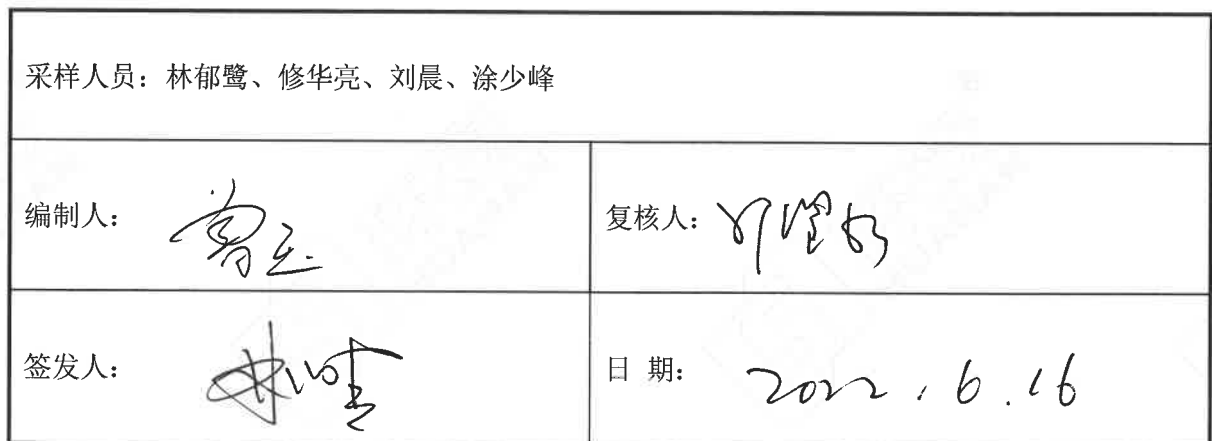 采样人员：林郁鹭、修华亮、刘晨、涂少峰
编制人：
复核人：
签发人：
日 期：2022.6.16